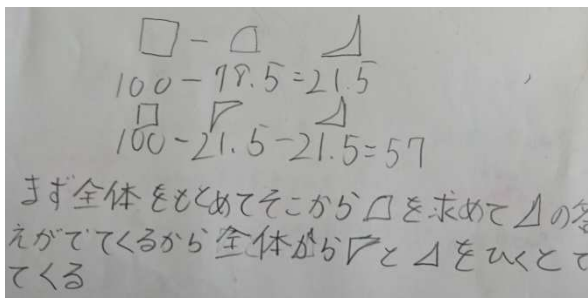 100-78.5=21.5
100-21.5-21.5=57
まず全体をもとめてそこから を求めて の答
えがでてくるから全体から と をひくとで
てくる